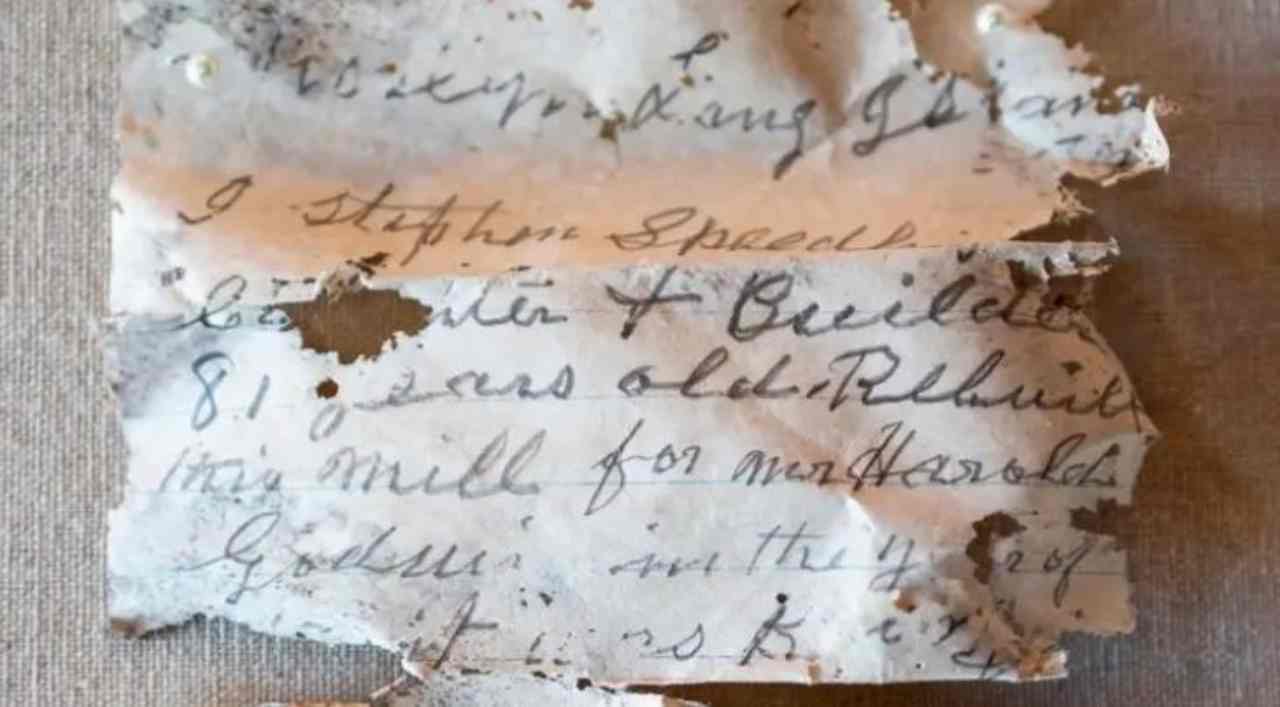 Roslyn Long Island
I Stephen Speedli
& Builder
81 years old. Rebuilt
this mill for mr Harold
Godwin in the of
it